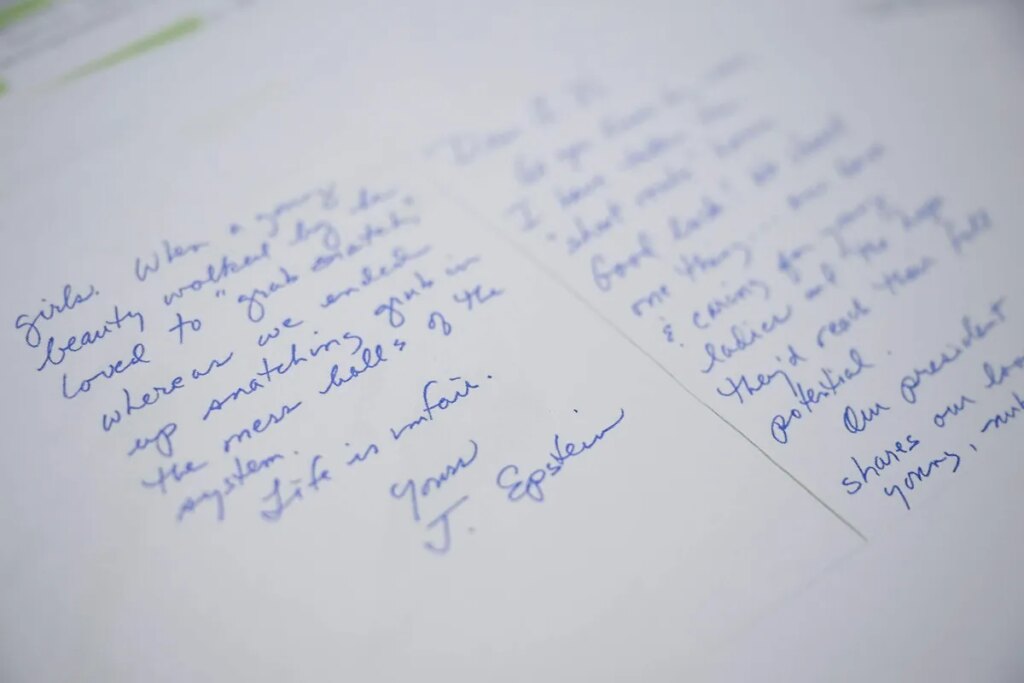 girls. When a young
beauty walked by he
loved to "grab snatch,"
whereas we ended
up snatching grub in
the mess halls of the
system.
Life is unfair.
Yours
J. Epstein
Dear
As you know by now
I have taken the
"short route" home
Good luck! We shared
one thing ... our love
& caring for young
ladies and the hope
they'd reach their full
potential.
Our president
shares our lov
young, nub